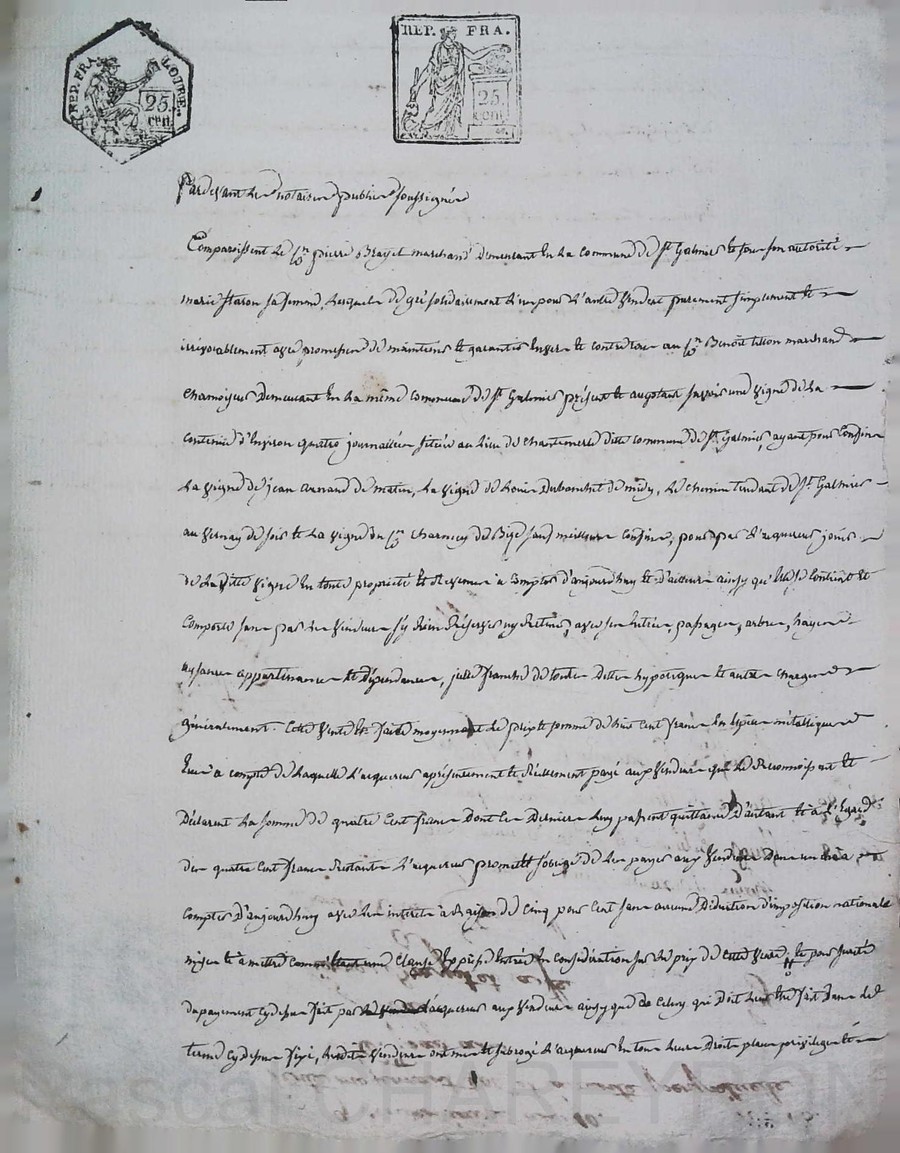 REP. FRA. LOIRE.
25. cen.
REP. FRA.
25. cent.
Pardevant Les notaires publics soussignés
Comparoissent Le Cen pierre Brayet marchand demeurant En La Commune de St Galmier Et sous son autorité
marie staron sa femme, Lesquels de gré solidairement L'un pour L'autre Vendent purement simplement Et
irrévocablement avec promesse de maintenir Et garantir Envers Et contre tous au Cen Benoit tillon marchand
chamoyeur Demeurant En La même Commune de St Galmier présent Et acceptant savoir une Vigne de La
contenue d'Environ quatre journallées située au Lieu de chantemerle ditte commune de St Galmier, ayant pour Confins
La Vigne de jean de matin, La Vigne de Louis de midy, Le chemin tendant de St Galmier
au Vernay de soir Et La Vigne du Cen de Bize sauf meilleurs Confins; pour par L'acquereur jouir
de La ditte Vigne En toute propriété Et Revenus a Compter d'aujourd'huy Et d'ailleurs ainsy qu'Elle Se Contient Et
Comporte sans par Les Vendeurs s'y Rien Réserver ny Retenir, avec ses Entrées, passages, arbres, hayes
aysances appartenances Et dépendances, jcelle franche de toutes Dettes hypoteques Et autres charges
généralement. Cette Vente Est faite moyennant Le prix Et somme de huit Cent francs En Espèces métalliques
a compte de Laquelle L'acquereur a présentement Et Réellement payé aux Vendeurs qui Le Reconnoissent Et
Déclarent La somme de quatre Cent francs Dont Ces Derniers Luy passent quittance D'autant Et à L'Egard
des quatre Cent francs Restants L'acquereur promet Et s'oblige de Les payer aux Vendeurs Dans un an a
compter D'aujourd'huy avec Les interets à Raison de Cinq pour Cent sans aucune Déduction d'imposition nationale
mise Et à mettre Clause Expresse Entrée En Considération sur Le prix de Cette Vente; Et pour sureté
du payement Cydessus fait par L'acquereur aux Vendeurs ainsy que de Celuy qui Doit Leur Etre fait Dans Le
terme Cydessus fixé, Lesdits Vendeurs ont mis Et subrogé L'acquereur En tous Leurs Droits place privilege Et